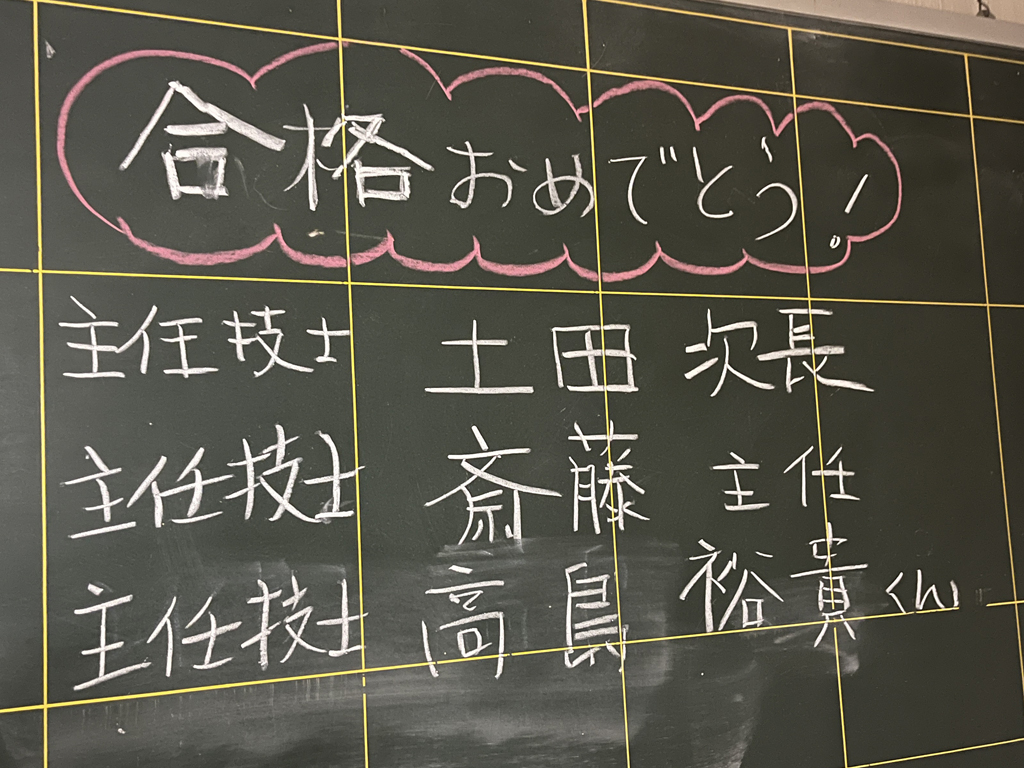 合格おめでとう!
主任技士 土田 次長
主任技士 斎藤 主任
主任技士 高島 裕貴くん